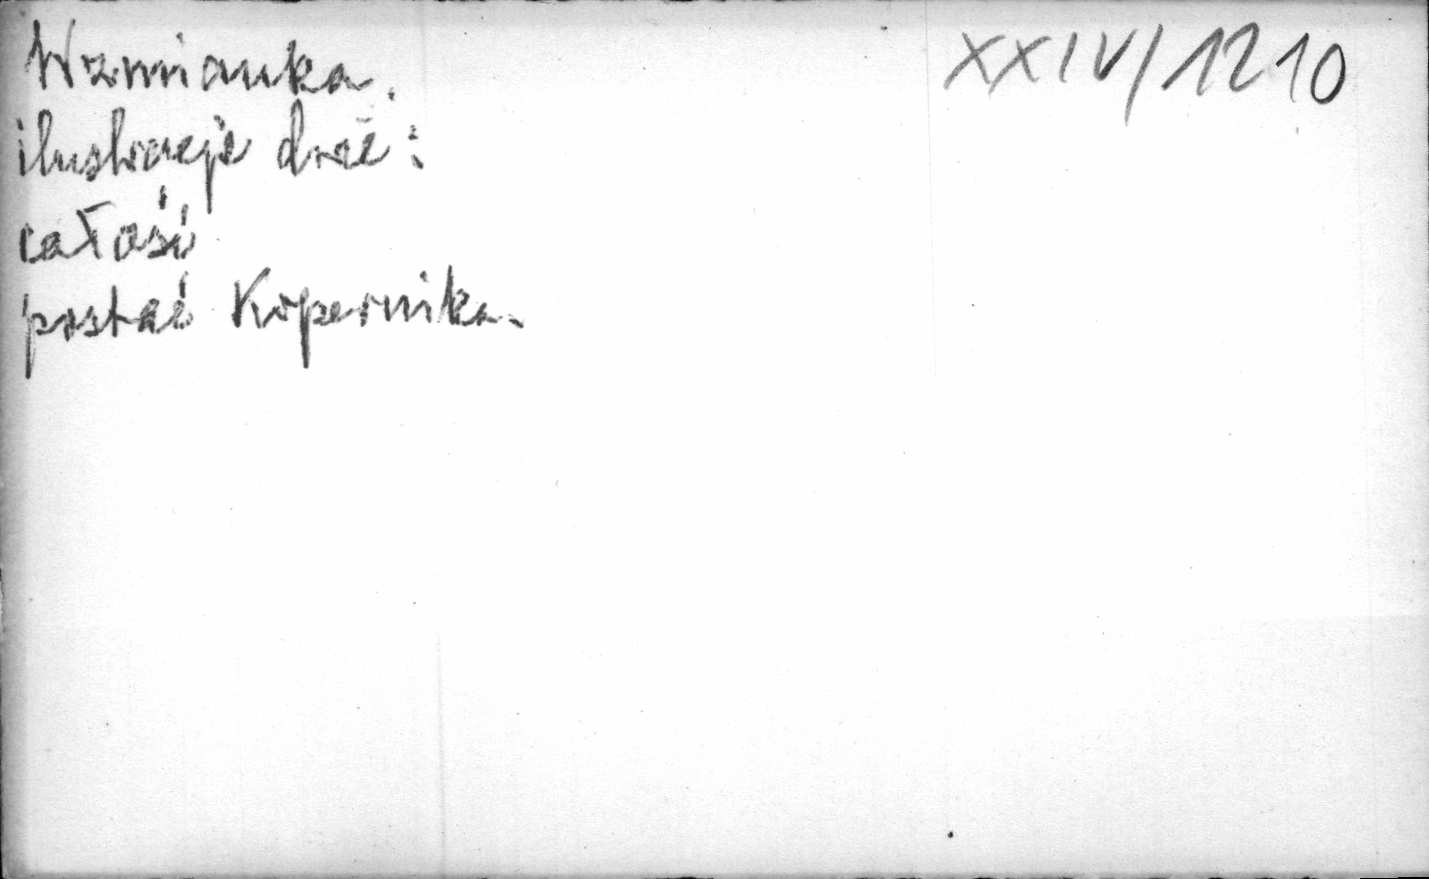 Wzmianka. XXIV/1210
ilustracje dwie:
całość
postać Kopernika.